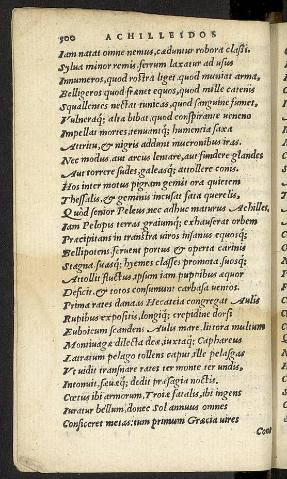 500 ACHILLEIDOS
Iam natat omne nemus, cæduntur robora classi.
Sylua minor remis, ferrum laxatur ad usus
Innumeros, quod rostra liget, quod muniat arma,
Belligeros quod frænet equos, quod mille catenis
Squallentes nectat tunicas, quod sanguine fumet,
Vulneraq; alta bibat, quod conspirante ueneno
Impellat mortes, tenuantq; humentia saxa
Attritu, & nigris addunt mucronibus iras.
Nec modus aut arcus lentare, aut fundere glandes
Aut torrere sudes, galeasq; attollere conis.
Hos inter motus pigram gemit ora quietem
Thessalis, & geminis incusat fata querelis,
Quòd senior Peleus, nec adhuc maturus Achilles.
Iam Pelopis terras graiumq; exhauserat orbem
Præcipitans in transtra uiros insanus equosq;
Bellipotens, feruent portus, & operta carinis
Stagna, suasq; hyemes classis promota, suosq;
Attollit fluctus, ipsum iam puppibus æquor
Deficit, & totos consumunt carbasa uentos.
Prima rates danaas Hecateia congregat Aulis
Rupibus expositis, longiq; crepidine dorsi
Euboicum scandens Aulis mare, littora multum
Moniuagæ dilecta deæ, iuxtaq; Caphareus
Latratum pelago tollens caput, ille pelasgas
Vt uidit tranare rates ter monte ter undis,
Intonuit, sæuæq; dedit præsagia noctis.
Cœtus ibi armorum, Troiæ fatalis, ibi ingens
Iuratur bellum, donec Sol annuus omnes
Conficeret metas: tum primum Græcia uires